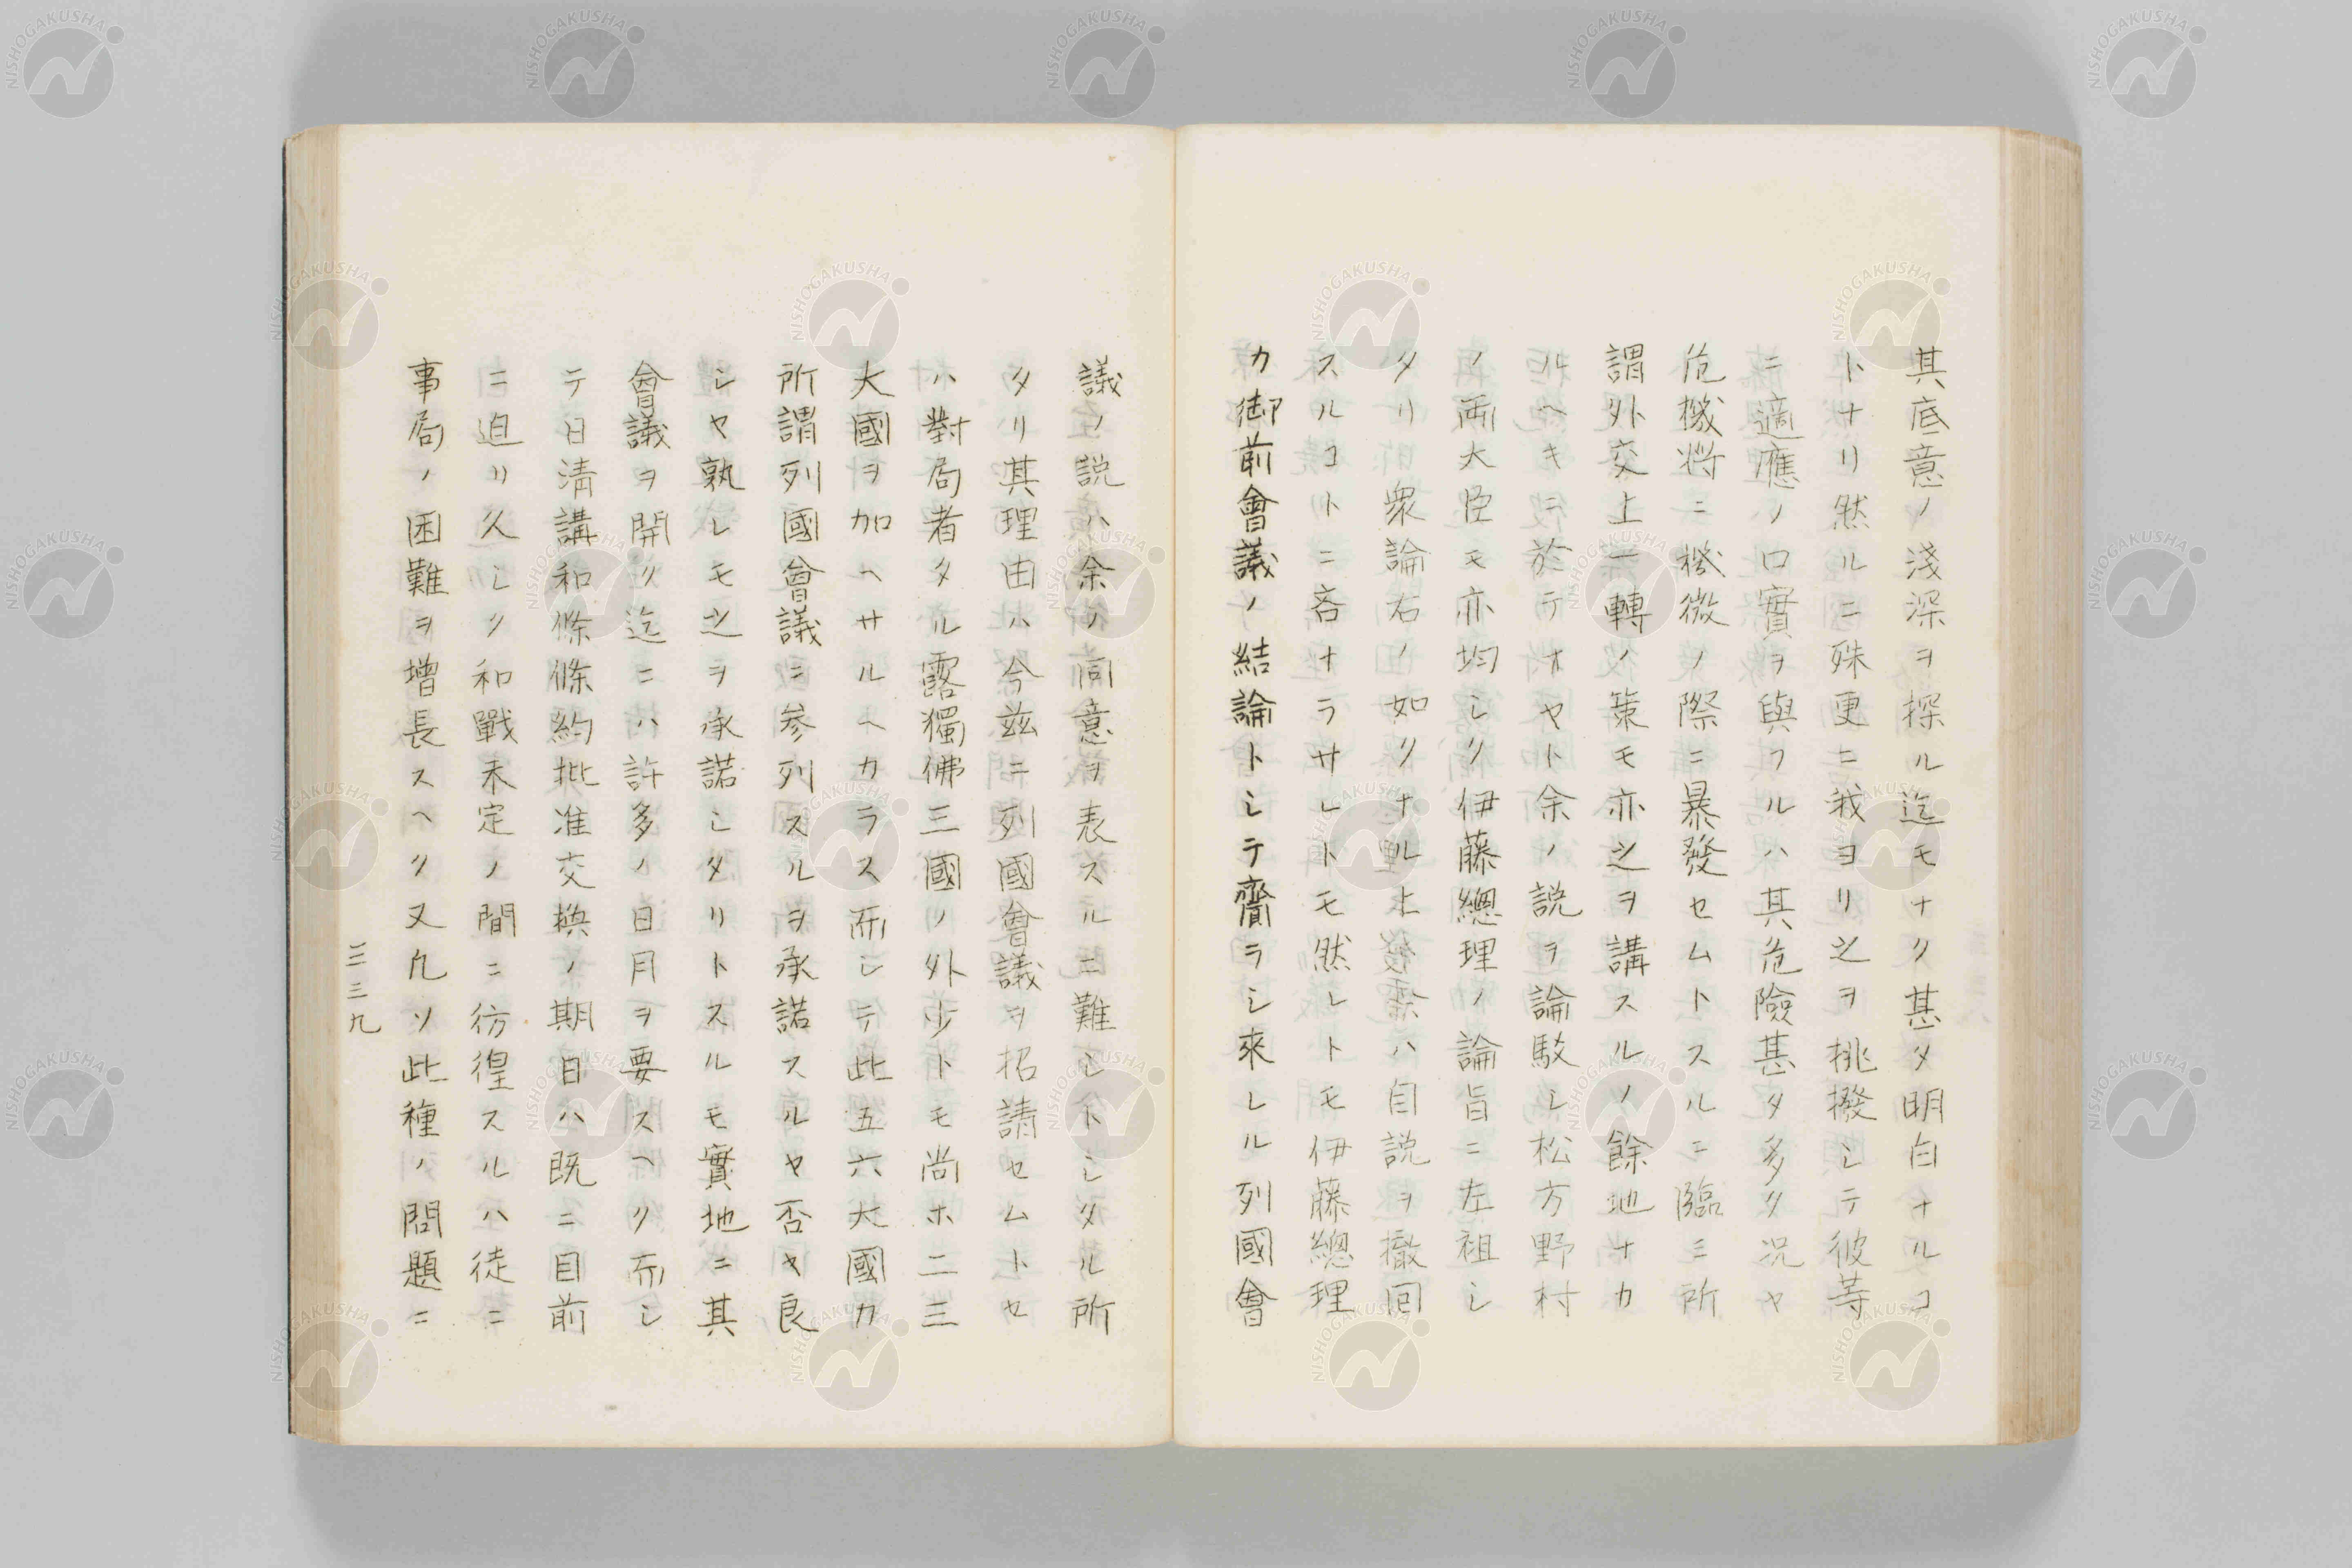 其底意ノ淺深ヲ探ル迄モナク甚タ明白ナルコ
トナリ然ルニ殊更ニ我ヨリ之ヲ挑撥シテ彼等
ニ適應ノ口實ヲ與フルハ其危險甚タ多タ況ヤ
危機将ニ機微ノ際ニ暴發セムトスルニ臨ミ所
謂外交上一轉ノ策モ亦之ヲ講スルノ餘地ナカ
ルヘキニ於テオヤト余ノ説ヲ論駁シ松方野村
ノ両大臣モ亦均シク伊藤總理ノ論旨ニ左祖シ
タリ衆論右ノ如クナル上ハ自説ヲ撤回
スルコトニ吝ナラサレトモ然レトモ伊藤總理
カ御前會議ノ結論トシテ齎ラシ來レル列國會
議ノ説ハ余ノ同意ヲ表スルニ難シトシタル所
タリ其理由ハ今茲ニ列國會議ヲ招請セムトセ
ハ對局者タル露獨佛三國ノ外少トモ尚ホ二三
大國ヲ加ヘサルヘカラス而シテ此五六大國カ
所謂列國會議ニ参列スルヲ承諾スルヤ否ヤ良
シヤ孰レモ之ヲ承諾シタリトスルモ實地ニ其
會議ヲ開ク迄ニハ許多ノ日月ヲ要スヘク而シ
テ日清講和條條約批准交換ノ期日ハ既ニ目前
ニ迫リ久シク和戰未定ノ間ニ彷徨スルハ徒ニ
事局ノ困難ヲ増長スヘク又凢ソ此種ノ問題ニ
三三九
NISHOGAKUSHA